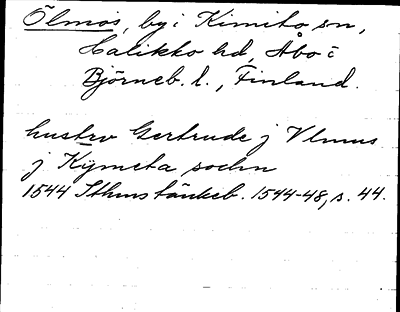 Ölmos, by i Kimito sn,
Halikko hd, Åbo o
Björneb. l., Finland.
hustrv Gertrude j Vlmus
j Kÿmeta sochn
1544 Sthms tänkeb. 1544-48, s. 44.